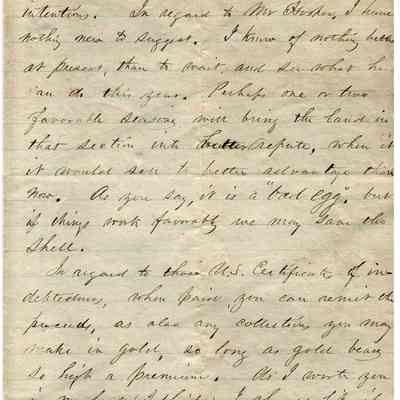 intentions. In regard to Mr Hooker, I have
nothing new to suggest. I know of nothing better
at present, than to wait, and see what he
can do this year. Perhaps one or two
favorable seasons will bring the land in
that section into better repute, when it
it would sell to better advantage than
now. As you say, it is a "bad egg". but
if things work favorably we may save the
shell.
In regard to those U.S. Certificates of in-
debtedness, when paid, you can remit the
proceeds, as also any collections you may
make in gold, so long as gold bears
so high a premium. As I wrote you